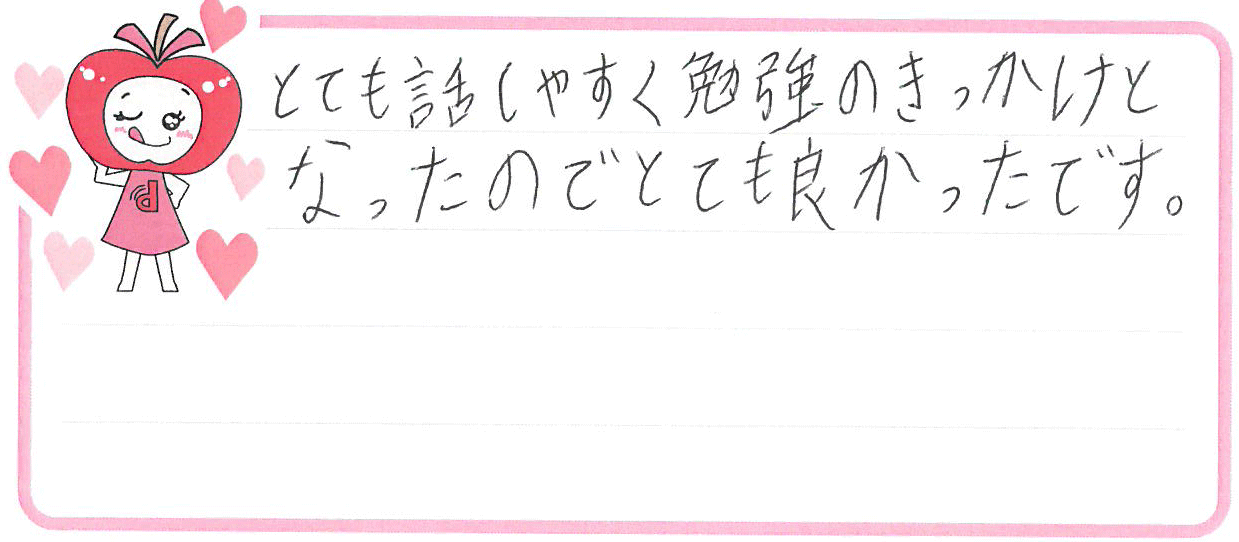 とても話しやすく勉強のきっかけと
なったのでとても良かったです。
d